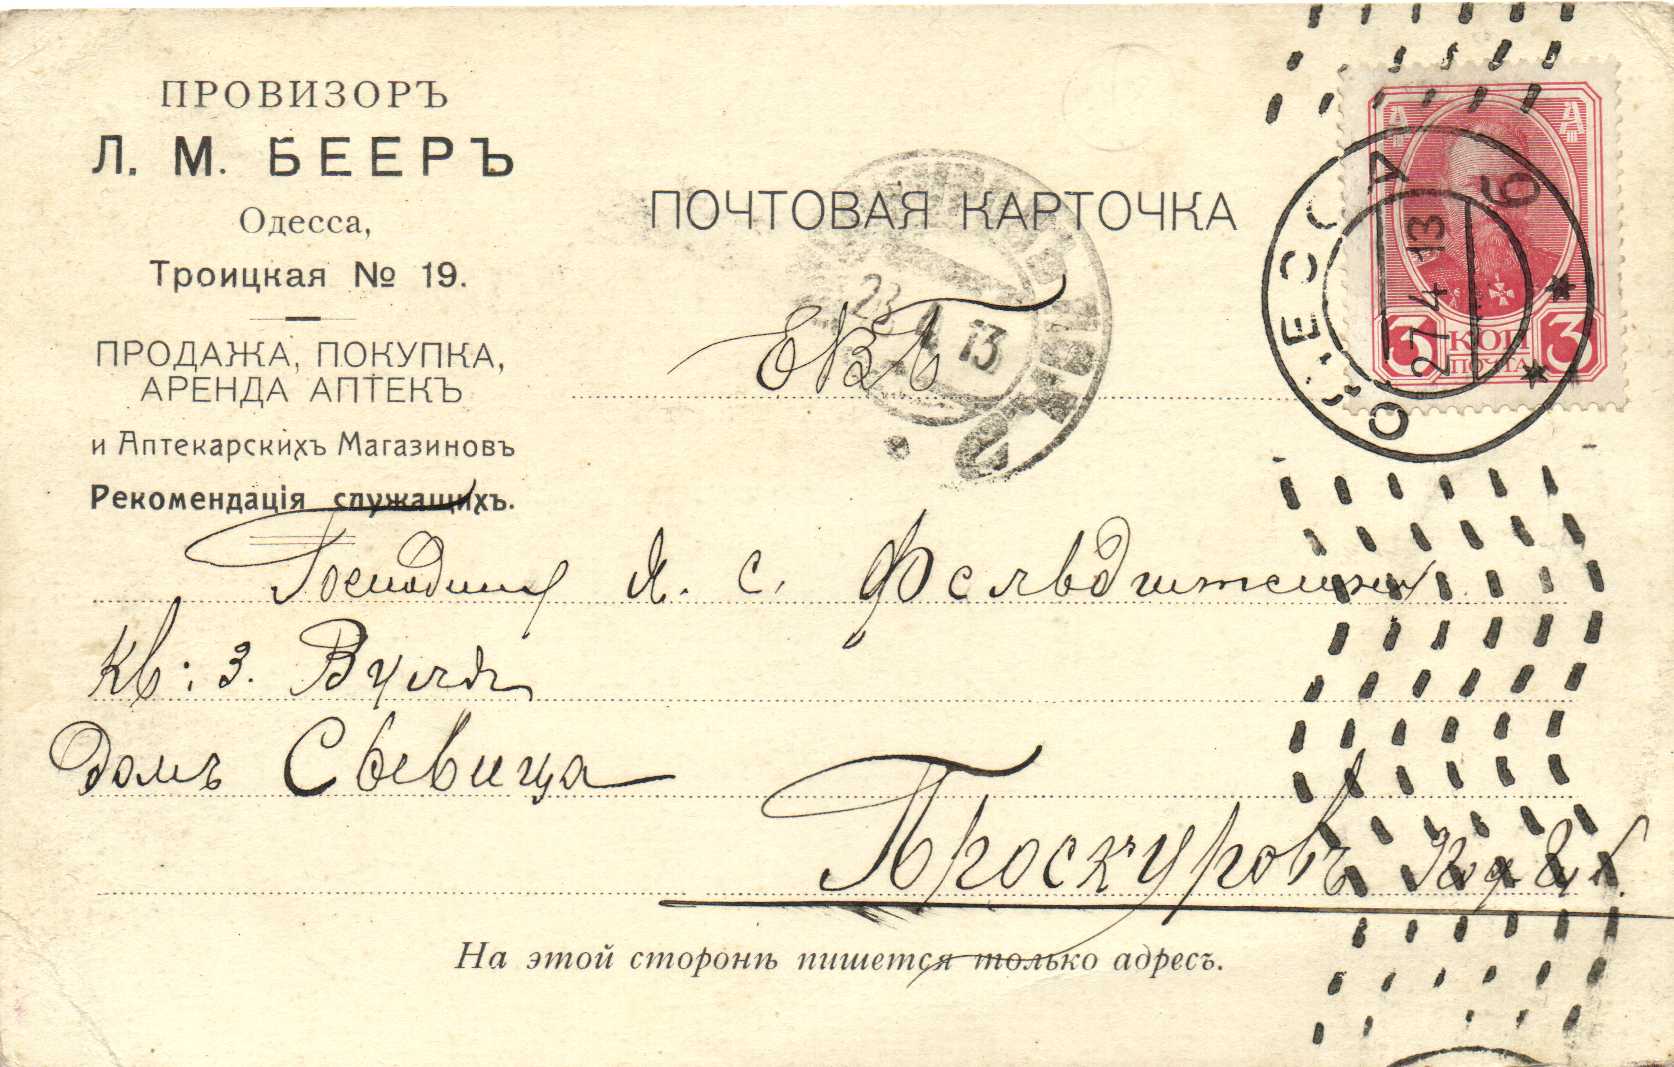 ПРОВИЗОРЪ
Л. М. БЕЕРЪ
Одесса,
Троицкая № 19.
ПРОДАЖА, ПОКУПКА,
АРЕНДА АПТЕКЪ
и Аптекарскихъ Магазиновъ
Рекомендація служащихъ.
ПОЧТОВАЯ КАРТОЧКА
А А
3 КОП 3
ПОЧТА
ОДЕССА
6
27 4 13
4 13
ЕВБ
Господину Я. С.
кв: 3.
Домъ
Проскуровъ
На этой сторонѣ пишется только адресъ.